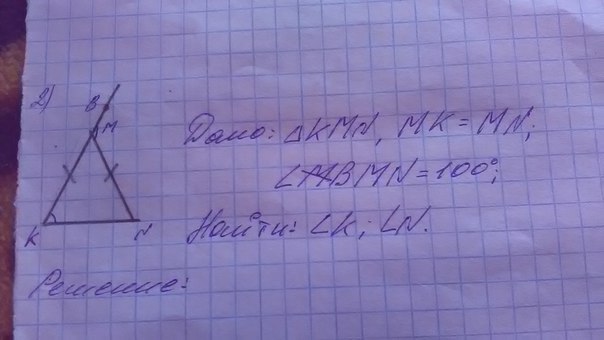 2)
B
M
Дано: △KMN, MK = MN;
∠BMN = 100°;
K
N
Найти: ∠K; ∠N.
Решение: